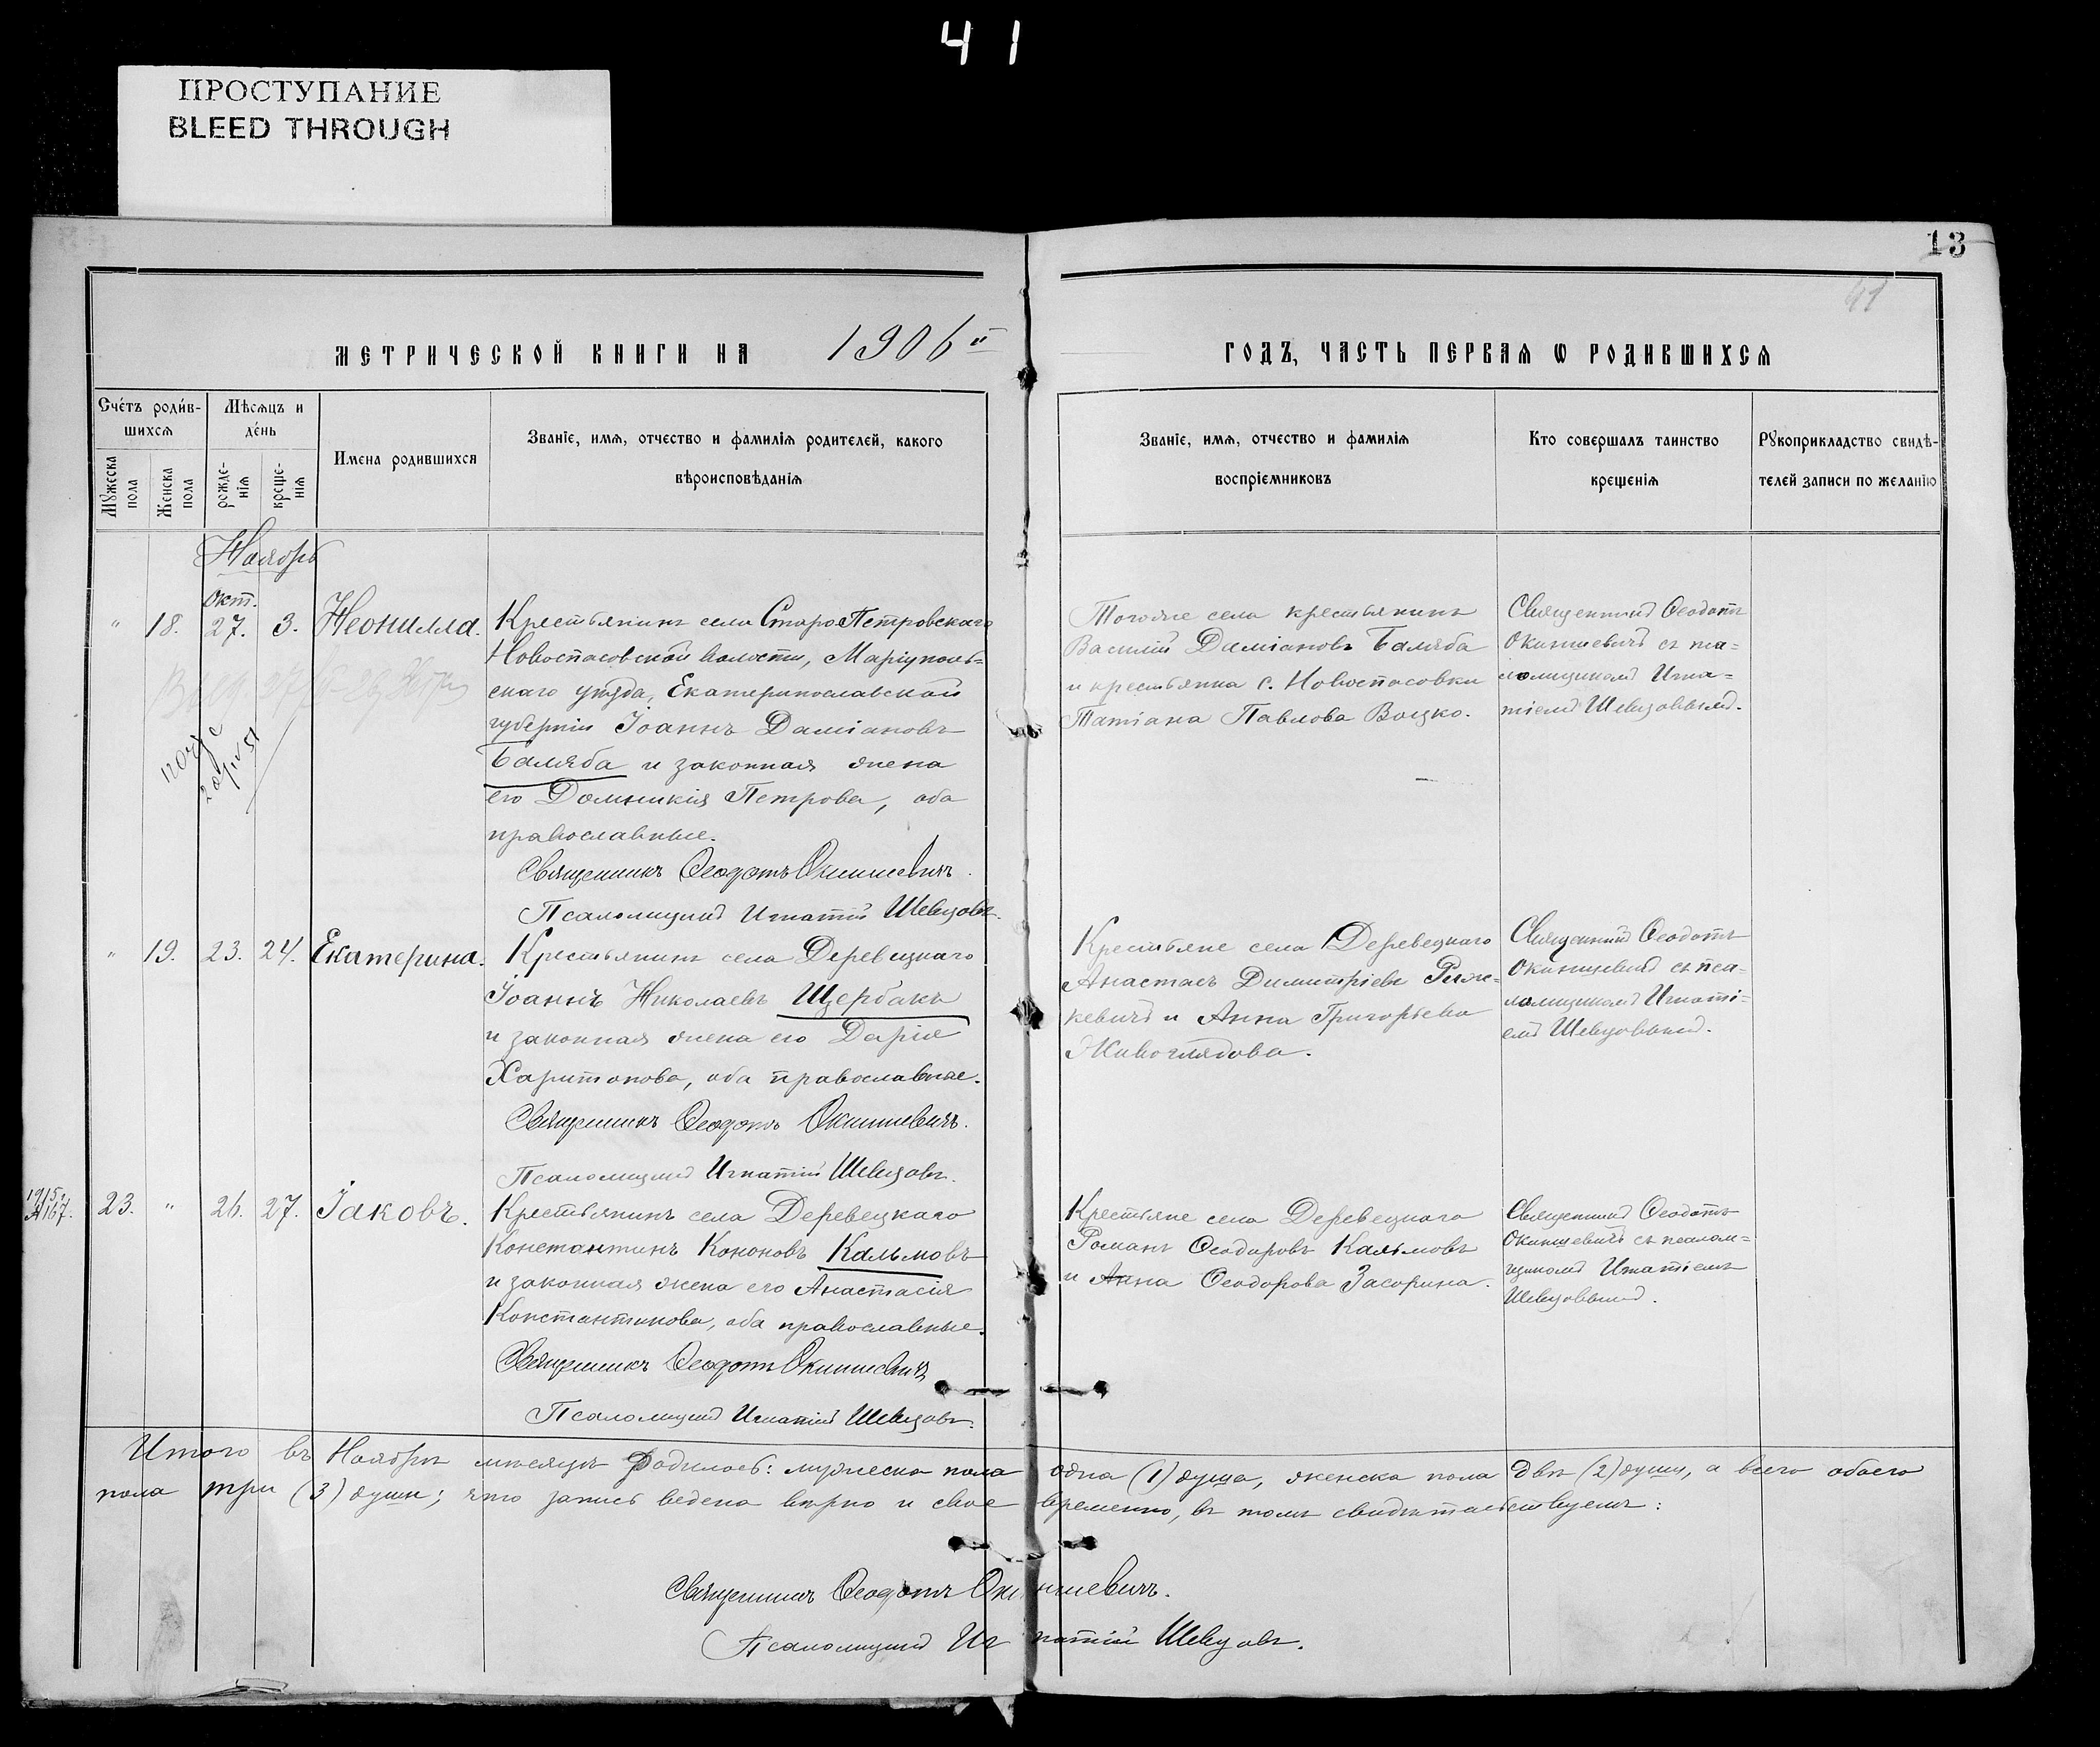 41
ПРОСТУПАНИЕ
BLEED THROUGH
13
41
МЕТРИЧЕСКОЙ КНИГИ НА 1906й
ГОДЪ, ЧАСТЬ ПЕРВАЯ Ѡ РОДИВШИХСѦ
Счétъ родив-
шихсѧ
Мѣсѧцъ и
дéнь
Мꙋжеска
пола
Женска
пола
рожде-
нїѧ
креще-
нїѧ
Имена родившихсѧ
Званїе, имѧ, отчество и фамилїѧ родителей, какого
вѣроисповѣданїѧ
Званїе, имѧ, отчество и фамилїѧ
воспрїемниковъ
Кто совершалъ таинство
крещенїѧ
Рꙋкоприкладство свидѣ-
телей записи по желанїю
Ноябрь
" 18. Окт. 27. 3. Неонилла.
Крестьянинъ села СтароПетровскаго
Новоспасовской волости, Маріуполь-
скаго уѣзда, Екатеринославской
губерніи Іоаннъ Даміановъ
Баляба и законная жена
его Домникія Петрова, оба
православные.
Священникъ Ѳеодотъ Окиншевичъ.
Псаломщикъ Игнатій Шевцовъ.
Тогоже села крестьянинъ
Василій Даміановъ Баляба
и крестьянка с. Новоспасовки
Татіана Павлова Воцко.
Священникъ Ѳеодотъ
Окиншевичъ съ пса-
ломщикомъ Игна-
тіемъ Шевцовымъ.
" 19. 23. 24. Екатерина.
Крестьянинъ села Деревецкаго
Іоаннъ Николаевъ Щербакъ
и законная жена его Дарія
Харитонова, оба православные.
Священникъ Ѳеодотъ Окиншевичъ.
Псаломщикъ Игнатій Шевцовъ.
Крестьяне села Деревецкаго
Анастасъ Димитріевъ
и Анна Григорьева
Живоглядова.
Священникъ Ѳеодотъ
Окиншевичъ съ пса-
ломщикомъ Игнаті-
емъ Шевцовымъ.
23. " 26. 27. Іаковъ.
Крестьянинъ села Деревецкаго
Константинъ Кононовъ Кальмовъ
и законная жена его Анастасія
Константинова, оба православные.
Священникъ Ѳеодотъ Окиншевичъ
Псаломщикъ Игнатій Шевцовъ.
Крестьяне села Деревецкаго
Романъ Ѳеодоровъ Кальмовъ
и Анна Ѳеодорова Засорина.
Священникъ Ѳеодотъ
Окиншевичъ съ псалом-
щикомъ Игнатіемъ
Шевцовымъ.
Итого въ Ноябрѣ мѣсяцѣ родилось: мужеска пола одна (1) душа, женска пола двѣ (2) души, а всего обоего
пола три (3) души; что запись ведена вѣрно и своевременно, въ томъ свидѣтельствуемъ:
Священникъ Ѳеодотъ Окиншевичъ.
Псаломщикъ Игнатій Шевцовъ.